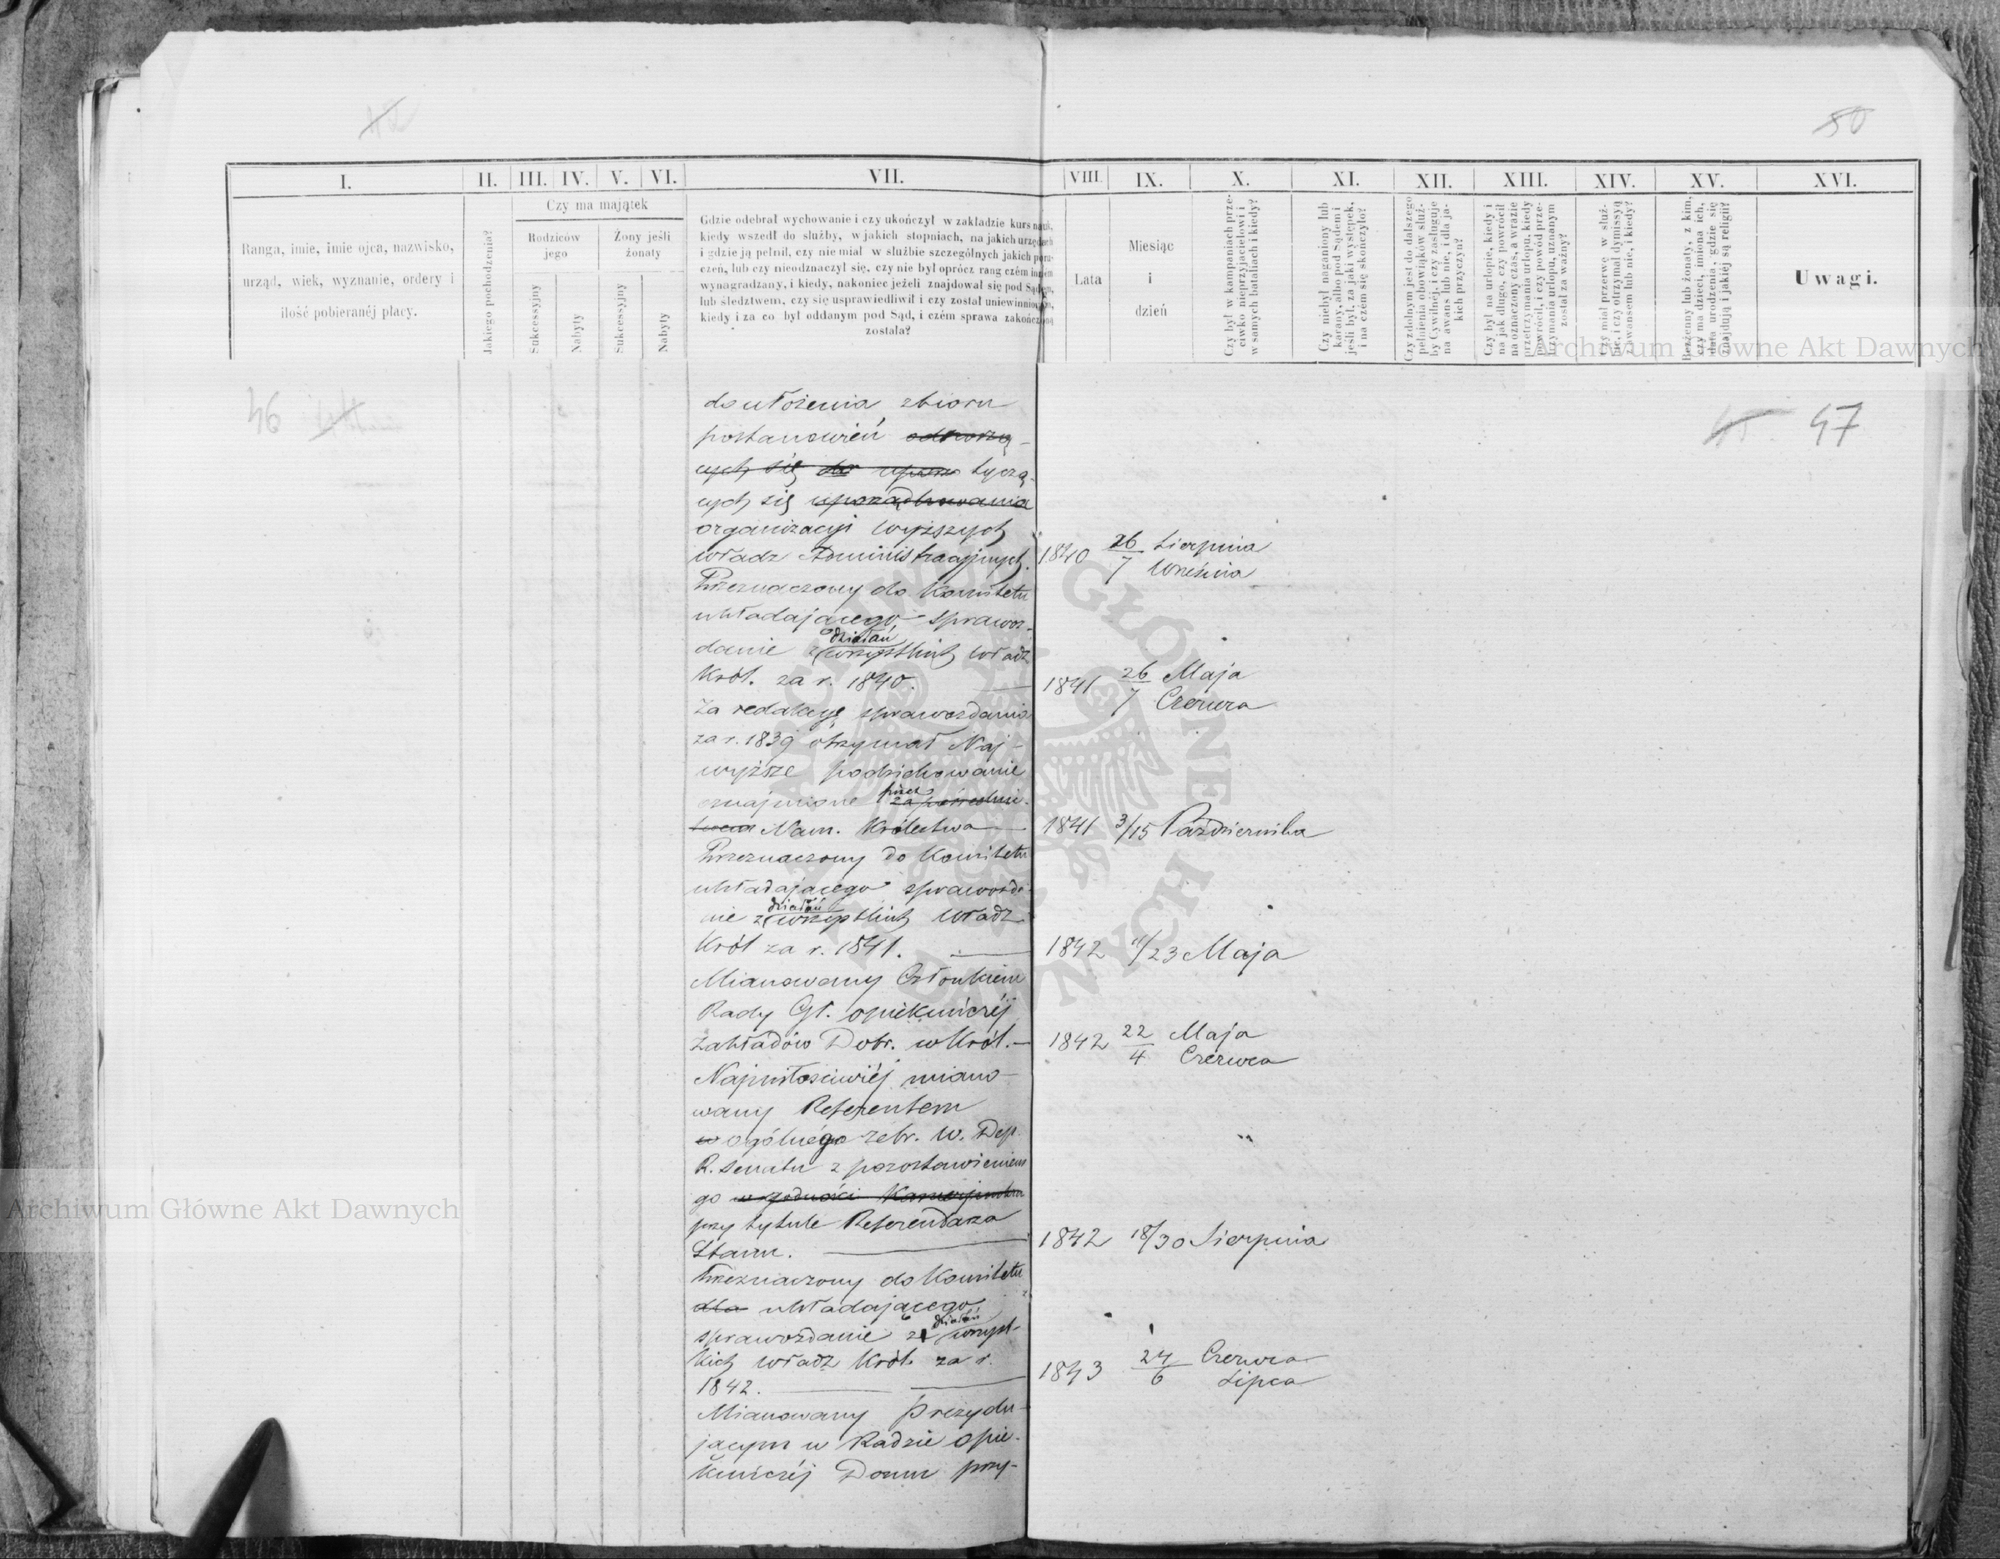 50
I. II. III. IV. V. VI. VII. VIII. IX. X. XI. XII. XIII. XIV. XV. XVI.
Ranga, imie, imie ojca, nazwisko,
urząd, wiek, wyznanie, ordery i
ilość pobieranéj płacy.
Jakiego pochodzenia?
Czy ma majątek
Rodziców
jego
Żony jeśli
żonaty
Sukcessyjny
Nabyty
Sukcessyjny
Nabyty
Gdzie odebrał wychowanie i czy ukończył w zakładzie kurs nauk,
kiedy wszedł do służby, w jakich stopniach, na jakich urzędach
i gdzie ją pełnił, czy nie miał w służbie szczególnych jakich poru-
czeń, lub czy nieodznaczył się, czy nie był oprócz rang czém inném
wynagradzany, i kiedy, nakoniec jeżeli znajdował się pod Sądem,
lub śledztwem, czy się usprawiedliwił i czy został uniewinniony,
kiedy i za co był oddanym pod Sąd, i czém sprawa zakończoną
została?
Lata
Miesiąc
i
dzień
Czy był w kampaniach prze-
ciwko nieprzyjacielowi i
w samych bataliach i kiedy?
Czy niebył naganiony lub
karany, albo pod Sądem i
jeśli był, za jaki występek,
i na czém się skończyło?
Czy zdolnym jest do dalszego
pełnienia obowiąków służ-
by Cywilnéj, i czy zasługuje
na awans lub nie, i dla ja-
kich przyczyn?
Czy był na urlopie, kiedy i
na jak długo, czy powrócił
na oznaczony czas, a w razie
przetrzymania urlopu, kiedy
powrócił, i czy powód prze-
trzymania urlopu, uznanym
został za ważny?
Czy miał przerwę w służ-
bie, i czy otrzymał dymissyą
z awansem lub nie, i kiedy?
Bezżenny lub żonaty, z kim,
czy ma dzieci, imiona ich,
data urodzenia, gdzie się
znajdują i jakiéj są religii?
Uwagi.
47
do ułożenia zbioru
postanowień odnoszą-
cych się do upora tyczą-
cych się uporządkowania
organizacyi wyższych
władz Administracyjnych. 1840 26/7 Sierpnia Września
Przeznaczony do Komitetu
układającego sprawoz-
danie z działań wszystkich władz
Król. za r. 1840. 1841 26/7 Maja Czerwca
Za redakcyę sprawozdania
za r. 1839 otrzymał Naj-
wyższe podziękowanie
oznajmione przez za pośredni-
ctwem Nam. Królestwa 1841 3/15 Października
Przeznaczony do Komitetu
układającego sprawozda-
nie z działań wszystkich władz
Król za r. 1841. 1842 11/23 Maja
Mianowany Członkiem
Rady Gł. opiekuńczéj
Zakładów Dobr. w Król. 1842 22/4 Maja Czerwca
Najmiłościwiéj miano-
wany Referentem
w ogólnégo zebr. W. Dep.
R. Senatu z pozostawieniem
go w godności Kamerjunkra
przy tytule Referendarza
Stanu. 1842 18/30 Sierpnia
Przeznaczony do Komitetu
dla układającego
sprawozdanie z działań wszyst-
kich władz Król. za r.
1842. 1843 24/6 Czerwca Lipca
Mianowany Prezydu-
jącym w Radzie opie-
kuńczéj Domu przy-
Archiwum Główne Akt Dawnych
Archiwum Główne Akt Dawnych